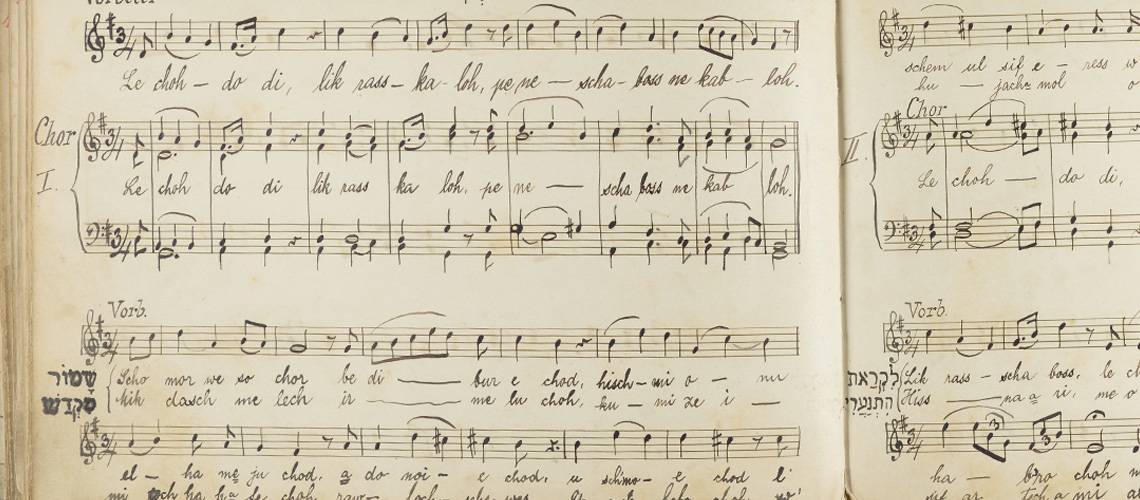 Vorbeter
Le choh — do di, lik rass — ka — loh, pe ne — scha — boss ne kab — loh.
Chor
I.
Le choh do di lik rass ka loh, pe ne — scha boss ne kab loh.
Vorb.
שמור
Scho mor we so chor be di — bur e chod, hisch — mi o — nu
מקדש
Mik dasch me lech ir — me lu choh, ku — mi ze i —
el — ha me ju chod, a do noi — e chod, u schmo — e chod
schem ul sif e — ress
ku — jachz mol
Chor
II.
Le choh — do di,
Vorb.
לקראת
Lik rass — scha boss, le
התנערי
Hiss — na a ri, me
ha — choh